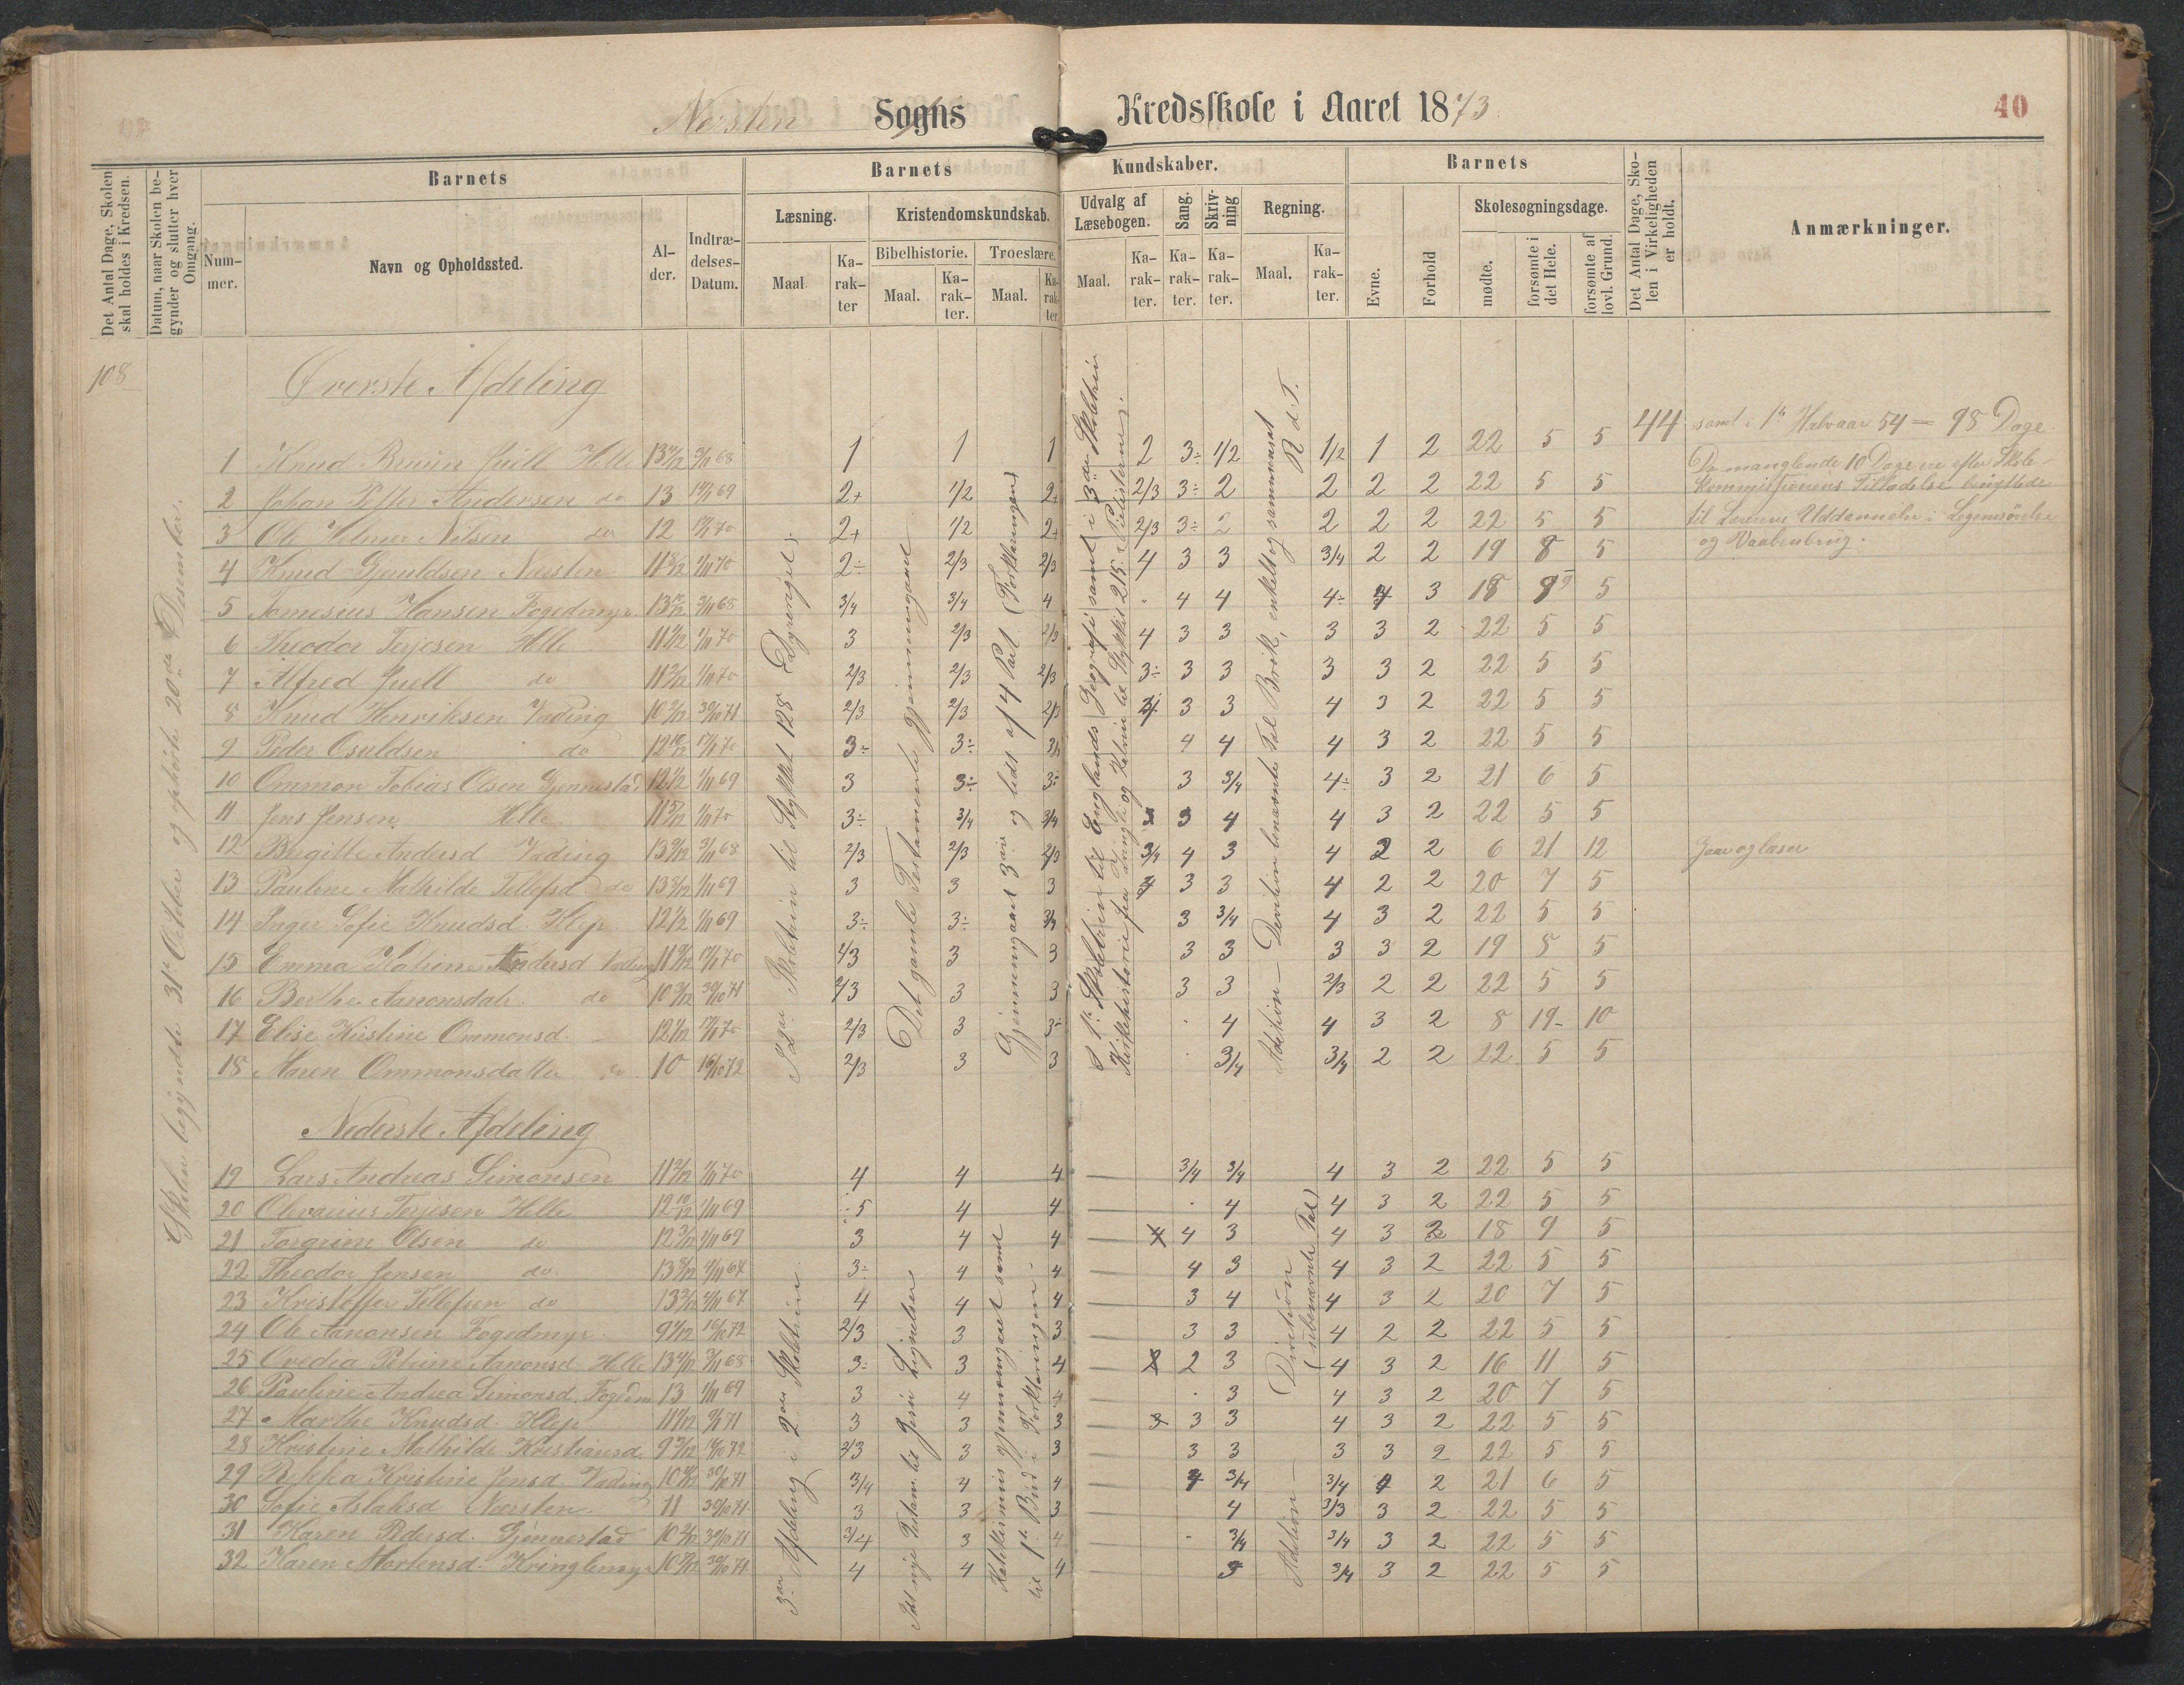 Næsten Sogns Kredsskole i Aaret 1873.
40
Det Antal Dage, Skolen skal holdes i Kredsen.
Datum, naar Skolen begynder og slutter hver Omgang.
Barnets
Nummer.
Navn og Opholdssted.
Alder.
Indtrædelses-Datum.
Barnets Kundskaber.
Læsning.
Maal
Karakter
Kristendomskundskab.
Bibelhistorie.
Maal.
Karakter.
Troeslære.
Maal.
Karakter.
Udvalg af Læsebogen.
Maal.
Karakter.
Sang.
Karakter.
Skrivning
Karakter.
Regning.
Maal.
Karakter.
Barnets
Evne.
Forhold
Skolesøgningsdage.
mødte.
forsømte i det Hele.
forsømte af lovl. Grund.
Det Antal Dage, Skolen i Virkeligheden er holdt.
Anmærkninger.
108
Skolen begyndte 31te Oktober og ophørte 20de Desember.
Øverste Afdeling
44 samt i 1ste Halvaar 54 = 98 Dage.
De manglende 10 Dage ere efter Skole-
kommissionens Tilladelse benyttede
til Lærerens Uddannelse i Legemsøvelser
og Vaabenbrug.
1 Knud Bruun Juell Helle 1 1 1 2 3÷ 1/2 1/2 1 2 22 5 5
2 Johan Peter Andersen do 13 2+ 1/2 2+ 2/3 3÷ 2 2 2 2 22 5 5
3 Ole Helmer Nilsen do 12 2+ 1/2 2+ 2/3 3÷ 2 2 2 2 22 5 5
4 Knud Gjeruldsen Næsten 2÷ 2/3 2/3 4 3 3 3/4 2 2 19 8 5
5 Tomesius Hansen Fogedmyr 3/4 3/4 4 4 4 4÷ 4 3 18 9 5
6 Theodor Terjesen Helle 3 2/3 2/3 4 3 3 3 3 2 22 5 5
7 Alfred Juell do 2/3 2/3 2/3 3÷ 3 3 3 3 2 22 5 5
8 Knud Henriksen Vading 2/3 2/3 2/3 3 3 4 3 2 22 5 5
9 Peder Osuldsen do 3÷ 3÷ 3/4 4 4 4 3 2 22 5 5
10 Ommon Tobias Olsen Gjennestad 3 3÷ 3÷ 3 3/4 4÷ 3 2 21 6 5
11 Jens Jensen Helle 3÷ 3/4 3/4 3 3 4 4 3 2 22 5 5
12 Bergitte Andersd. Vading 2/3 2/3 2/3 3/4 4 3 4 2 2 6 21 12 Gaar og læser
13 Pauline Mathilde Tellefsd. do 3 3 3 4 3 3 4 2 2 20 7 5
14 Inger Sofie Knudsd. Klep 3÷ 3÷ 3/4 3 3/4 4 3 2 22 5 5
15 Emma Katrine Andersd Vading 2/3 3 3 3 3 3 3 2 19 8 5
16 Berthe Aanonsdatr. do 2/3 3 3 3 3 2/3 2 2 22 5 5
17 Elise Kirstine Ommonsd. 2/3 3 3÷ 4 4 3 2 8 19 10
18 Maren Ommonsdatter do 10 2/3 3 3 3/4 3/4 2 2 22 5 5
Nederste Afdeling
19 Lars Andreas Simonsen 4 4 4 3/4 3/4 4 3 2 22 5 5
20 Olevanius Terjesen Helle ÷5 4 4 4 4 3 2 22 5 5
21 Torgrim Olsen do 3 4 4 4 4 3 4 3 2 18 9 5
22 Theodor Jensen do. 3÷ 4 4 4 3 4 3 2 22 5 5
23 Kristoffer Tellefsen do 4 4 4 3 4 4 3 2 20 7 5
24 Ole Aanonsen Fogedmyr 2/3 3 3 3 3 4 2 2 22 5 5
25 Ovedia Petrine Aanonsd. Helle 3÷ 3 4 2 3 4 3 2 16 11 5
26 Pauline Andrea Simonsd. Fogedm 13 3 4 4 3 4 3 2 20 7 5
27 Marthe Knudsd. Klep 3 3 3 3 3 4 3 2 22 5 5
28 Kristine Mathilde Kristiansd. 2/3 3 3 3 3 3 3 2 22 5 5
29 Rebekka Kristine Jensd. Vading 3/4 4 4 4 3/4 3/4 4 2 21 6 5
30 Sofie Aslaksd Næsten 11 3 3 3 4 3/3 3 2 22 5 5
31 Karen Pedersd. Gjennestad 3/4 3 4 3/4 3/4 3 2 22 5 5
32 Karen Mortensd. Kringlemyr 4 4 4 5 3/4 3 2 22 5 5
I 2det Skoletrin til Stykket 128 (Dyreriget).
Det gamle Testamente gjennemgaaet
Gjennemgaaet 3die og lidt af 4 Part (Forklaringen)
I 1ste Skoletrin til Englands Geografi samt i 3die Skoletrin
Kirkehistorie fra og Kalvin til Stykket 215. (Pietisterne).
Adition – Division benævnte Tal Brøk, enkelt og sammensat R d T.
3die Afdeling i 2det Skoletrin
Det nye Testam. til Jesu Lignelser
Katekismus gjennemgaaet samt
til 1ste Bud i Forklaringen.
Adition – Division
(ubenævnte Tal)